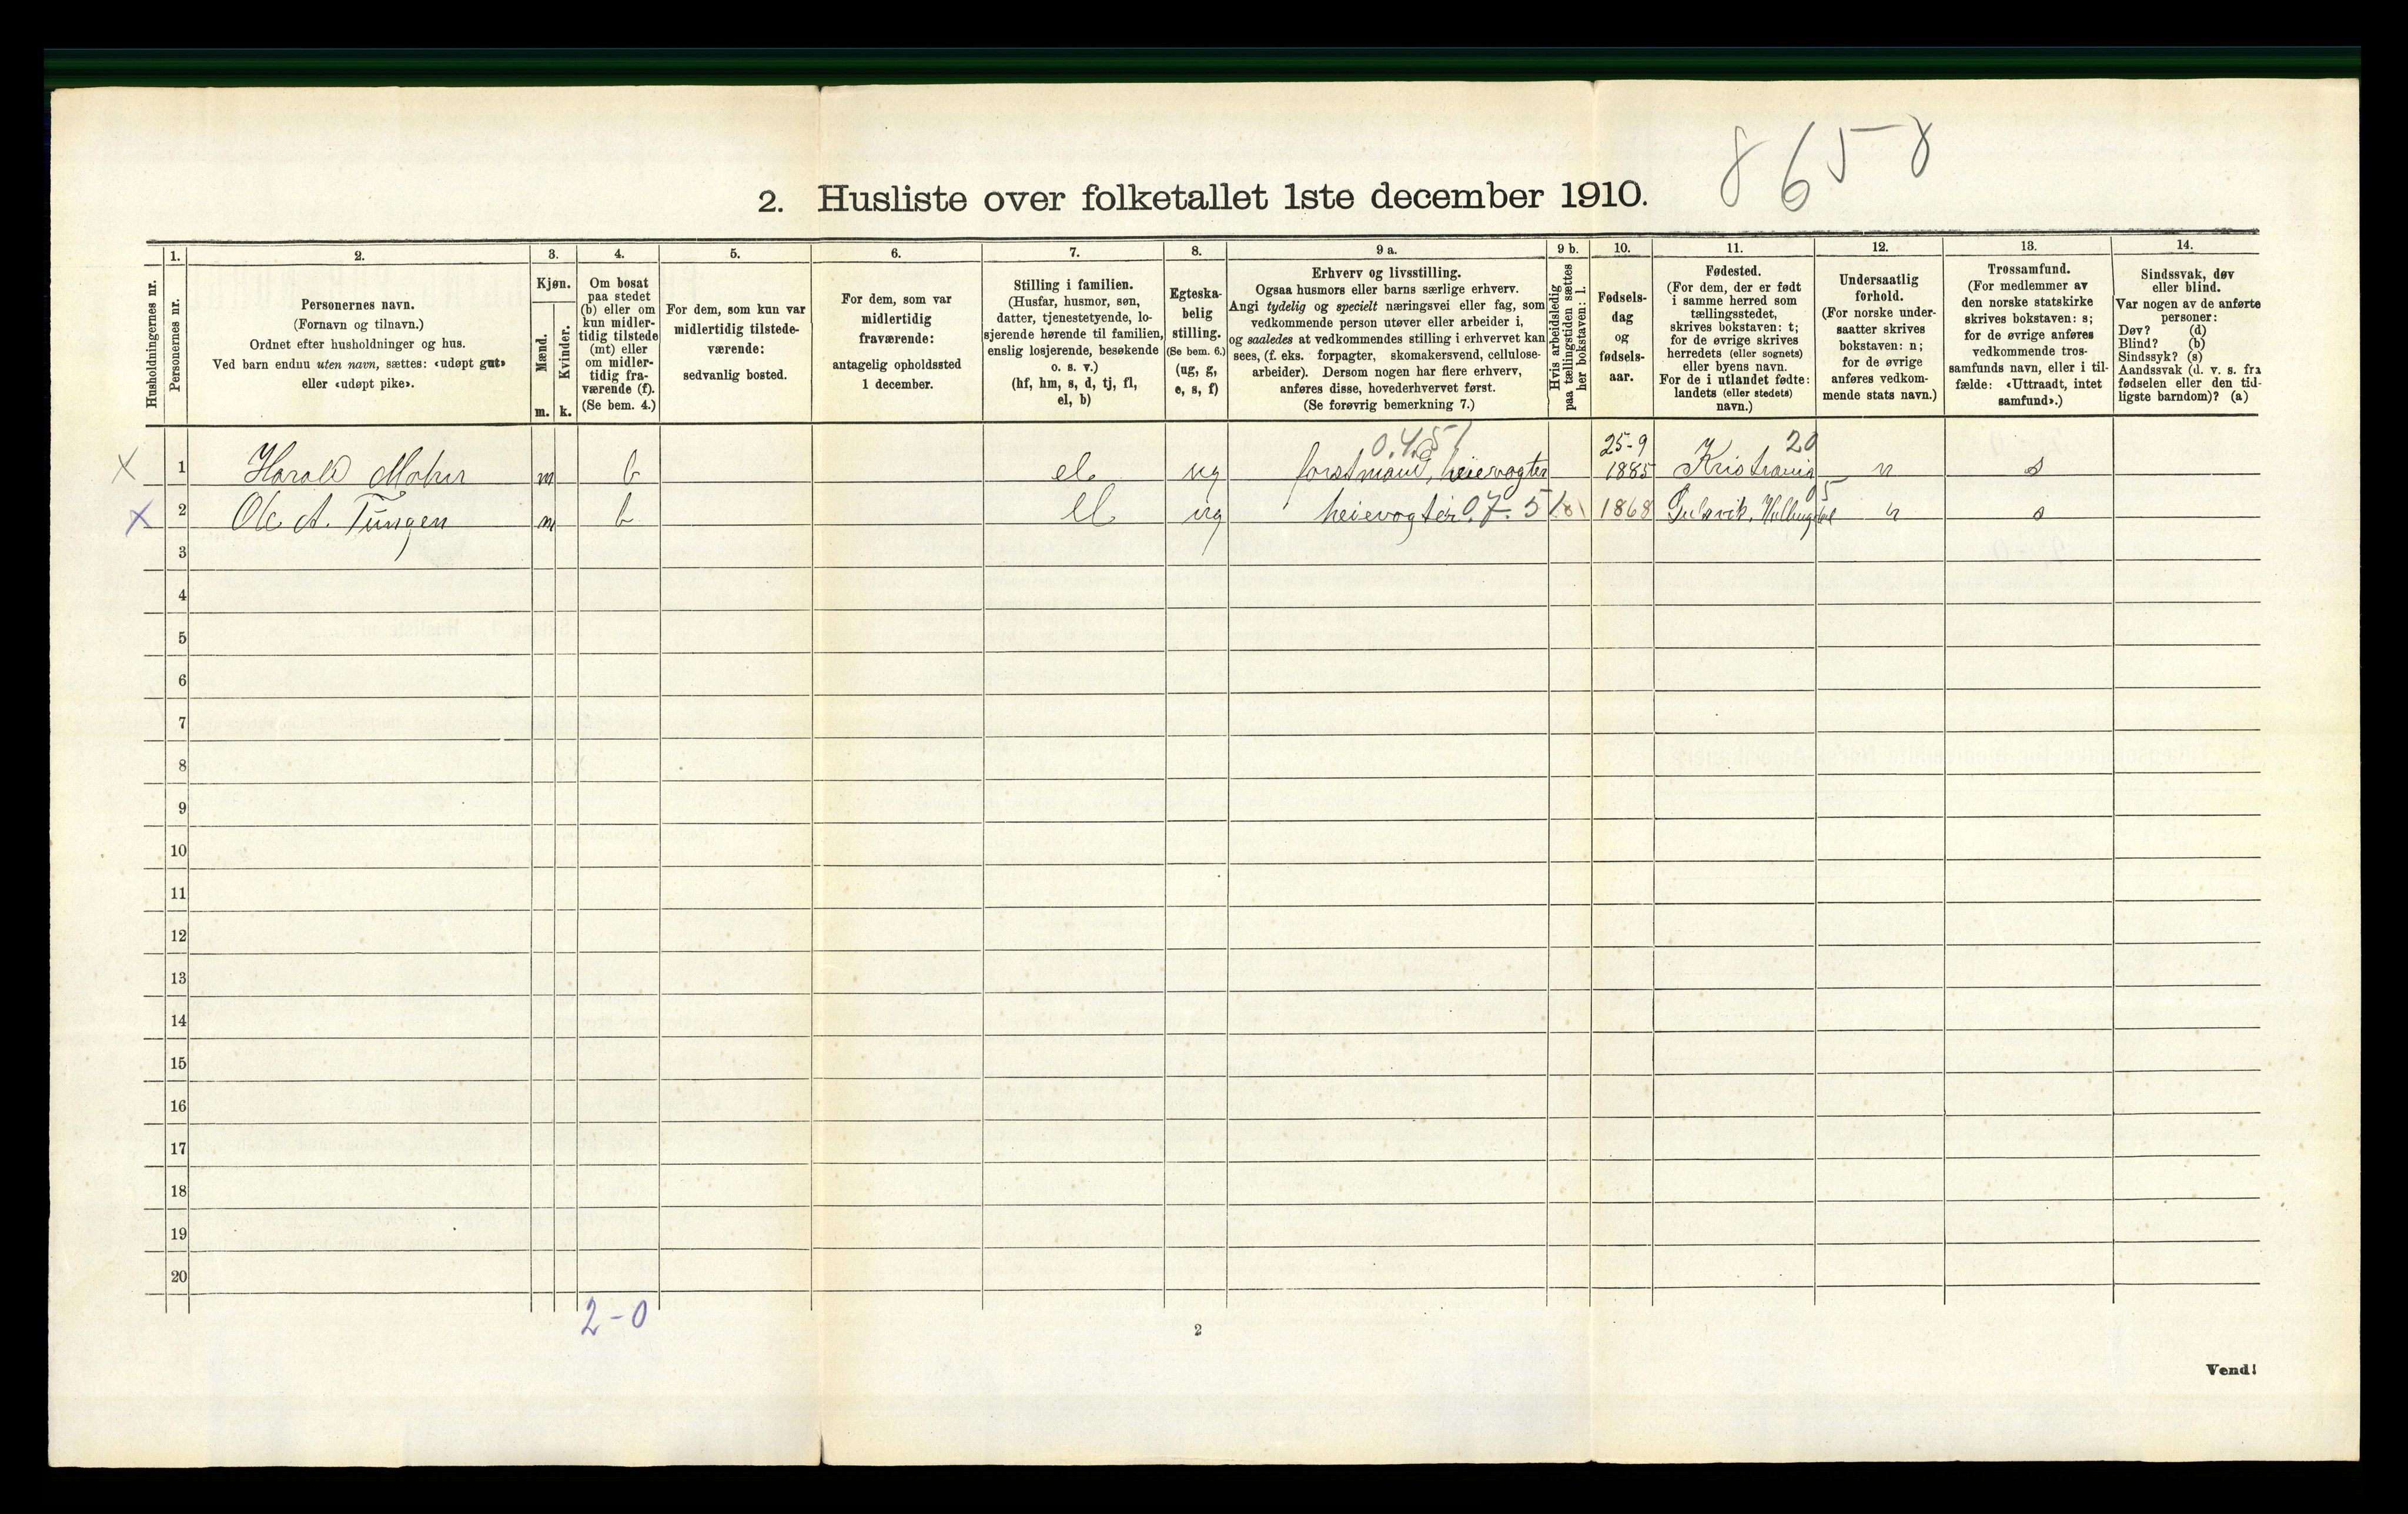 8 6 5 8
2. Husliste over folketallet 1ste december 1910.
Husholdningernes nr.
1.
Personernes nr.
2.
Personernes navn.
(Fornavn og tilnavn.)
Ordnet efter husholdninger og hus.
Ved barn endnu uten navn, sættes: «udøpt gut»
eller «udøpt pike».
3.
Kjøn.
Mænd.
Kvinder.
m. k.
4.
Om bosat
paa stedet
(b) eller om
kun midler-
tidig tilstede
(mt) eller
om midler-
tidig fra-
værende (f).
(Se bem. 4.)
5.
For dem, som kun var
midlertidig tilstede-
værende:
sedvanlig bosted.
6.
For dem, som var
midlertidig
fraværende:
antagelig opholdssted
1 december.
7.
Stilling i familien.
(Husfar, husmor, søn,
datter, tjenestetyende, lo-
sjerende hørende til familien,
enslig losjerende, besøkende
o. s. v.)
(hf, hm, s, d, tj, fl,
el, b)
8.
Egteska-
belig
stilling.
(Se bem. 6.)
(ug, g,
e, s, f)
9 a.
Erhverv og livsstilling.
Ogsaa husmors eller barns særlige erhverv.
Angi tydelig og specielt næringsvei eller fag, som
vedkommende person utøver eller arbeider i,
og saaledes at vedkommendes stilling i erhvervet kan
sees, (f. eks. forpagter, skomakersvend, cellulose-
arbeider). Dersom nogen har flere erhverv,
anføres disse, hovederhvervet først.
(Se forøvrig bemerkning 7.)
9 b.
Hvis arbeidsledig
paa tællingstiden sættes
her bokstaven: l.
10.
Fødsels-
dag
og
fødsels-
aar.
11.
Fødested.
(For dem, der er født
i samme herred som
tællingsstedet,
skrives bokstaven: t;
for de øvrige skrives
herredets (eller sognets)
eller byens navn.
For de i utlandet fødte:
landets (eller stedets)
navn.)
12.
Undersaatlig
forhold.
(For norske under-
saatter skrives
bokstaven: n;
for de øvrige
anføres vedkom-
mende stats navn.)
13.
Trossamfund.
(For medlemmer av
den norske statskirke
skrives bokstaven: s;
for de øvrige anføres
vedkommende tros-
samfunds navn, eller i til-
fælde: «Uttraadt, intet
samfund».)
14.
Sindssvak, døv
eller blind.
Var nogen av de anførte
personer:
Døv? (d)
Blind? (b)
Sindssyk? (s)
Aandssvak (d. v. s. fra
fødselen eller den tid-
ligste barndom)? (a)
25-9 20
X 1 Harald m b el ug forstmand, heievogter 1885 Kristiania n s
X 2 Ole A. Tungen m b el ug heievogter 0.7.5 1868 Gulsvik, Hallingdal n s
3
4
5
6
7
8
9
10
11
12
13
14
15
16
17
18
19
20
2-0
2
Vend!